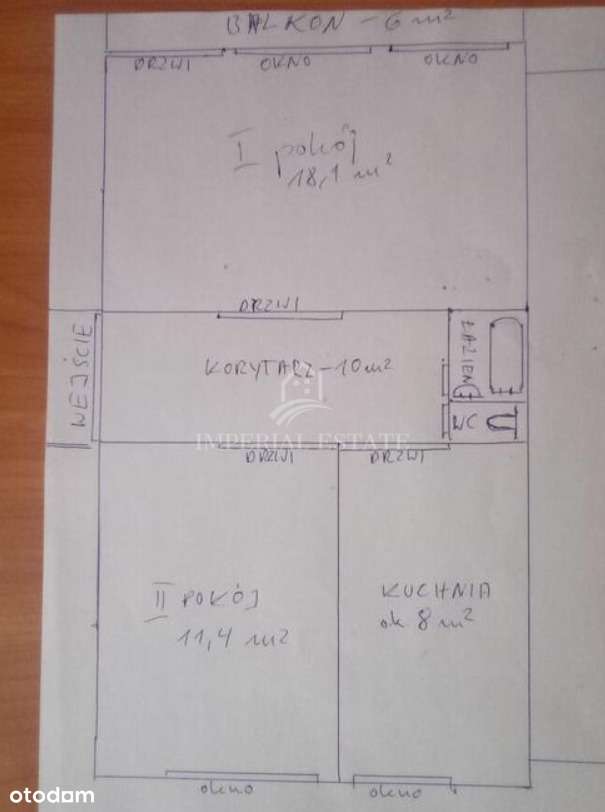 BALKON - 6 m²
DRZWI
OKNO
OKNO
I pokój
18,1 m²
DRZWI
WEJŚCIE
KORYTARZ - 10 m²
ŁAZIEN
WC
IMPERIAL ESTATE
DRZWI
DRZWI
II POKÓJ
11,4 m²
KUCHNIA
ok 8 m²
okno
okno
otodom